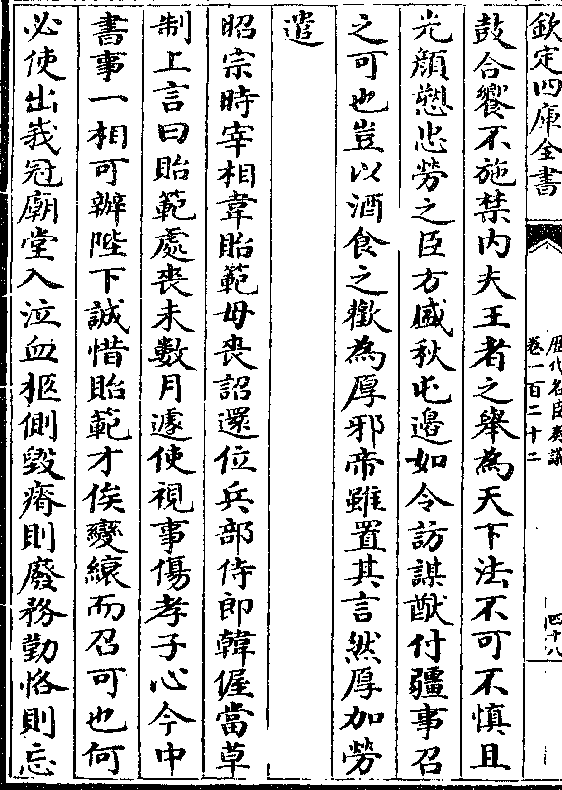 欽定四庫全書
歴代名臣奏議
卷一百二十二
四十八
鼓合饗不施禁内夫王者之舉為天下法不可不慎且
光顔懇忠勞之臣方盛秋屯邉如令訪謀猷付疆事召
之可也豈以酒食之歡為厚邪帝雖置其言然厚加勞
遣
昭宗時宰相韋貽範母喪詔還位兵部侍郎韓偓當草
制上言曰貽範處喪未數月遽使視事傷孝子心今中
書事一相可辦陛下誠惜貽範才俟變縗而召可也何
必使出峩冠廟堂入泣血柩側毀瘠則廢務勤恪則忘